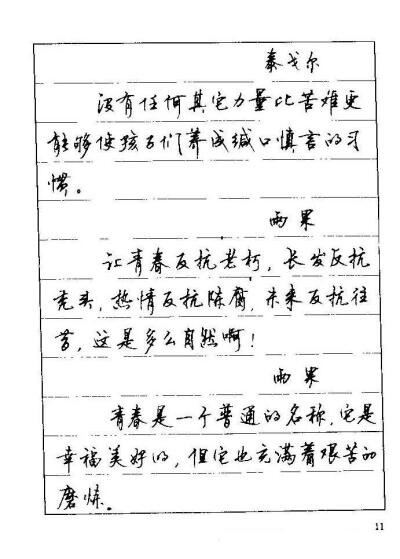 泰戈尔
没有任何其它力量比苦难更
能够使孩子们养成缄口慎言的习
惯。
雨果
让青春反抗老朽,长发反抗
秃头,热情反抗陈腐,未来反抗往
昔,这是多么自然啊!
雨果
青春是一个普通的名称,它是
幸福美好的,但它也充满着艰苦的
磨炼。
11